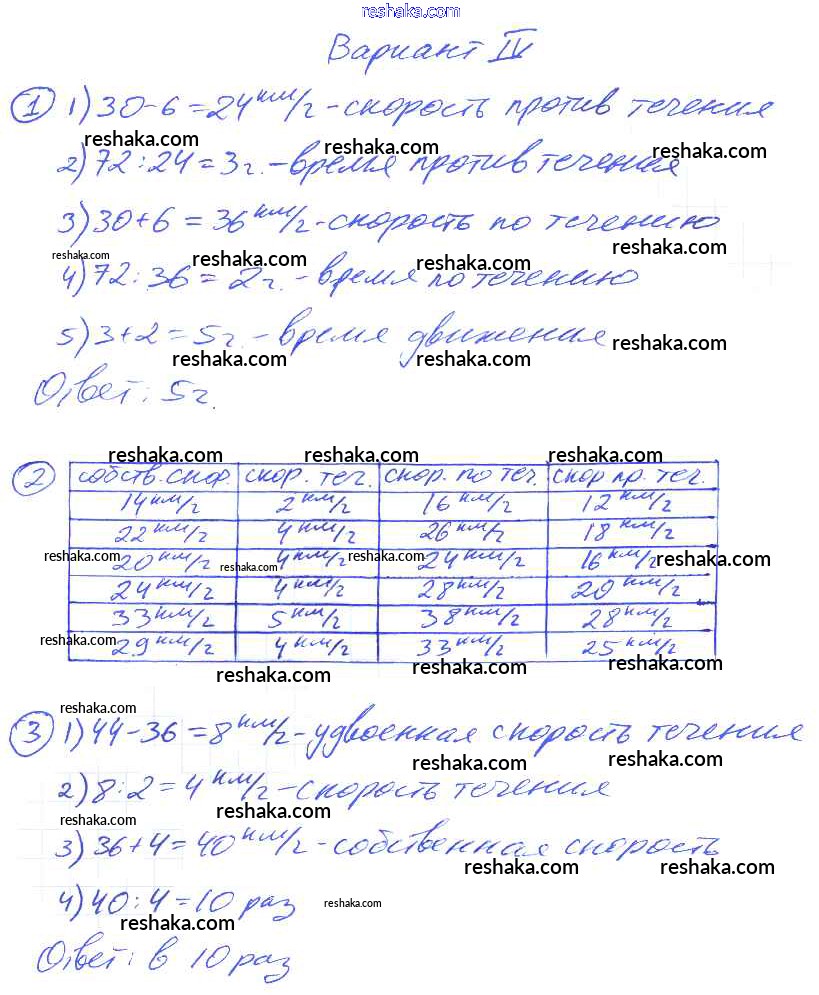 reshaka.com
Вариант IV
1 1) 30-6=24 км/г - скорость против течения
reshaka.com reshaka.com reshaka.com
2) 72:24=3г. - время против течения
3) 30+6=36 км/г - скорость по течению
reshaka.com reshaka.com reshaka.com reshaka.com
4) 72:36=2г. - время по течению
5) 3+2=5г. - время движения
reshaka.com reshaka.com reshaka.com
Ответ: 5г.
reshaka.com reshaka.com reshaka.com
2 собств. скор. скор. теч. скор. по теч. скор пр. теч.
14 км/г 2 км/г 16 км/г 12 км/г
22 км/г 4 км/г 26 км/г 18 км/г
reshaka.com reshaka.com reshaka.com reshaka.com
20 км/г 4 км/г 24 км/г 16 км/г
24 км/г 4 км/г 28 км/г 20 км/г
33 км/г 5 км/г 38 км/г 28 км/г
reshaka.com
29 км/г 4 км/г 33 км/г 25 км/г
reshaka.com reshaka.com reshaka.com
reshaka.com
3 1) 44-36=8 км/г - удвоенная скорость течения
reshaka.com reshaka.com
2) 8:2=4 км/г - скорость течения
reshaka.com reshaka.com
3) 36+4=40 км/г - собственная скорость
reshaka.com reshaka.com
4) 40:4=10 раз
reshaka.com reshaka.com
Ответ: в 10 раз